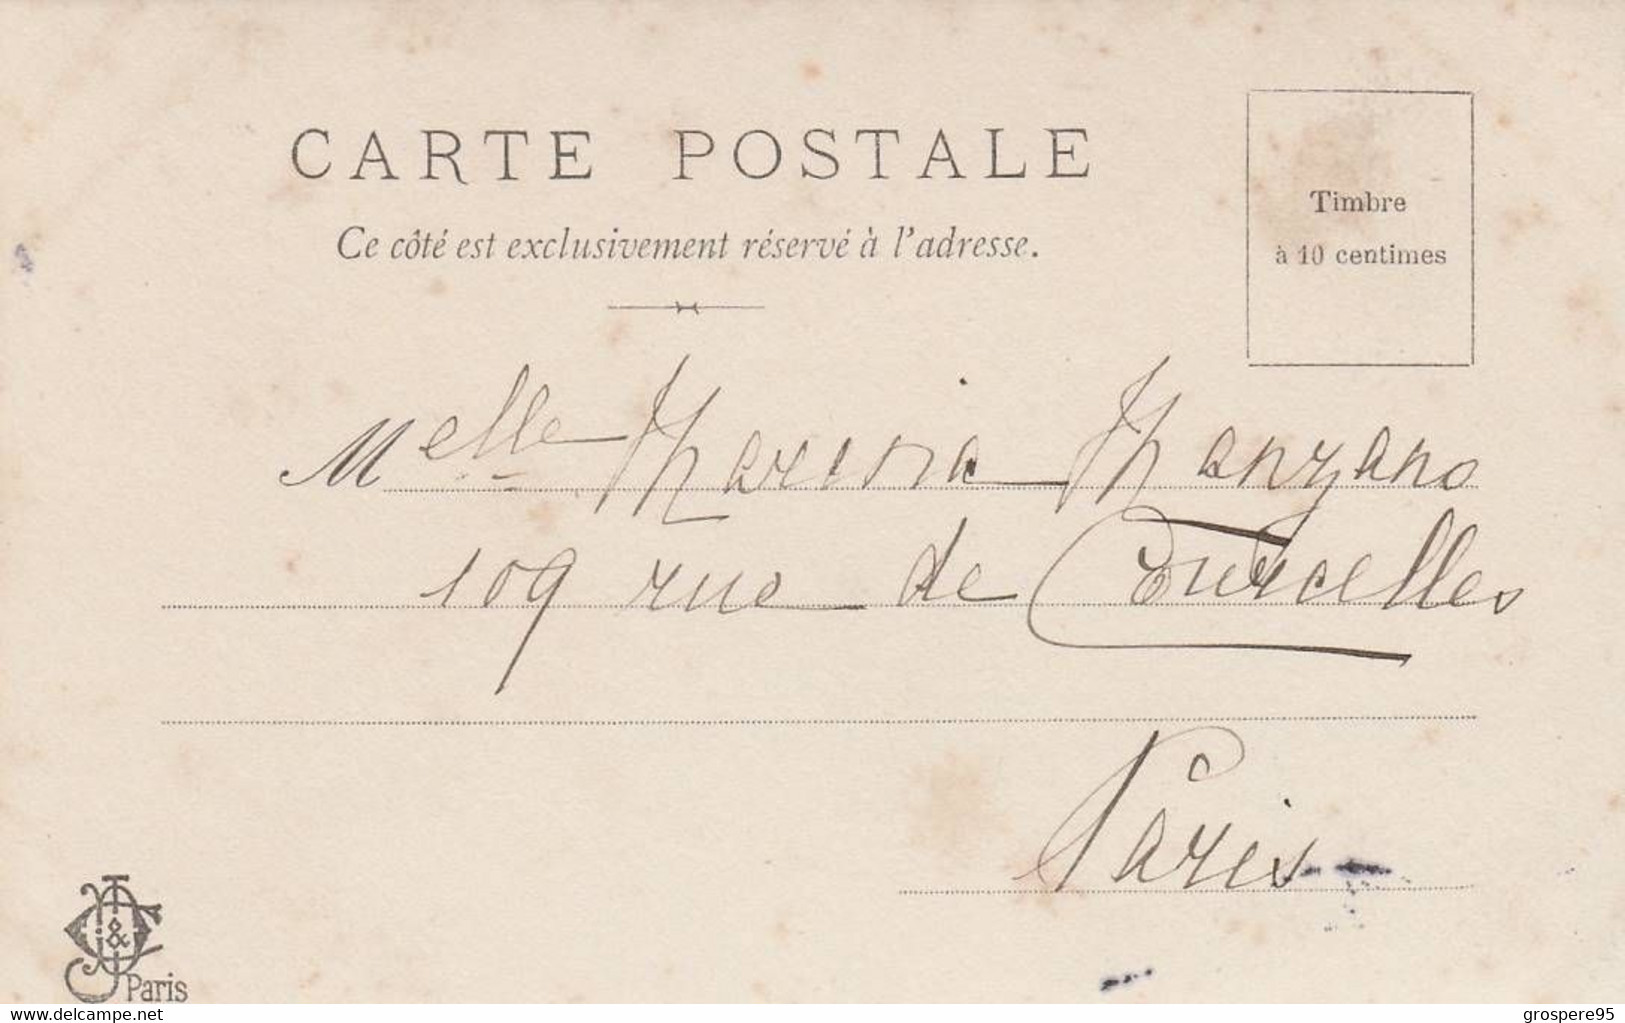 CARTE POSTALE
Ce côté est exclusivement réservé à l'adresse.
Timbre
à 10 centimes
Melle Manzano
109 rue de Courcelles
Paris
Paris
www.delcampe.net
grospere95